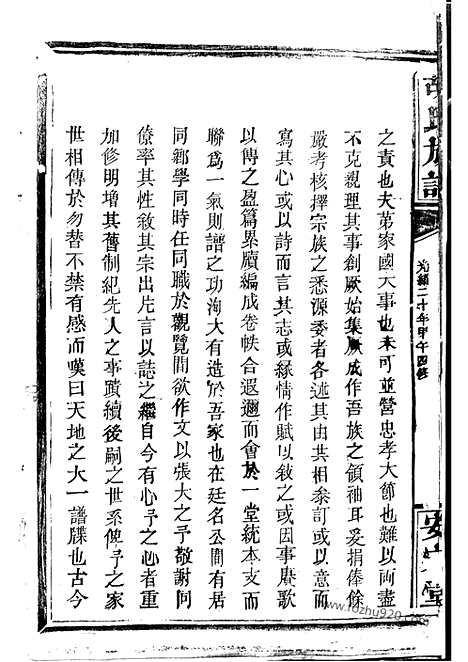 胡氏族譜
光緒二十年甲午四修
安 堂
之責也夫第家國大事也未可並營忠孝大節也難以兩盡
不克親理其事創厥始集厥成作吾族之領袖耳爰捐俸餘
嚴考核擇宗族之悉源委者各述其由共相叅訂或以意而
寫其心或以詩而言其志或緣情作賦以敘之或因事賡歌
以傳之盈篇累牘編成卷帙合遐邇而會於一堂統本支而
聯爲一氣則譜之功洵大有造於吾家也在廷名公間有居
同鄉學同時任同職於觀覽間欲作文以張大之予敬謝同
僚率其性敘其宗出片言以誌之繼自今有心予之心者重
加修明增其舊制紀先人之事蹟續後嗣之世系俾予之家
世相傳於勿替不禁有感而嘆曰天地之大一譜牒也古今
www.fozhu920.com